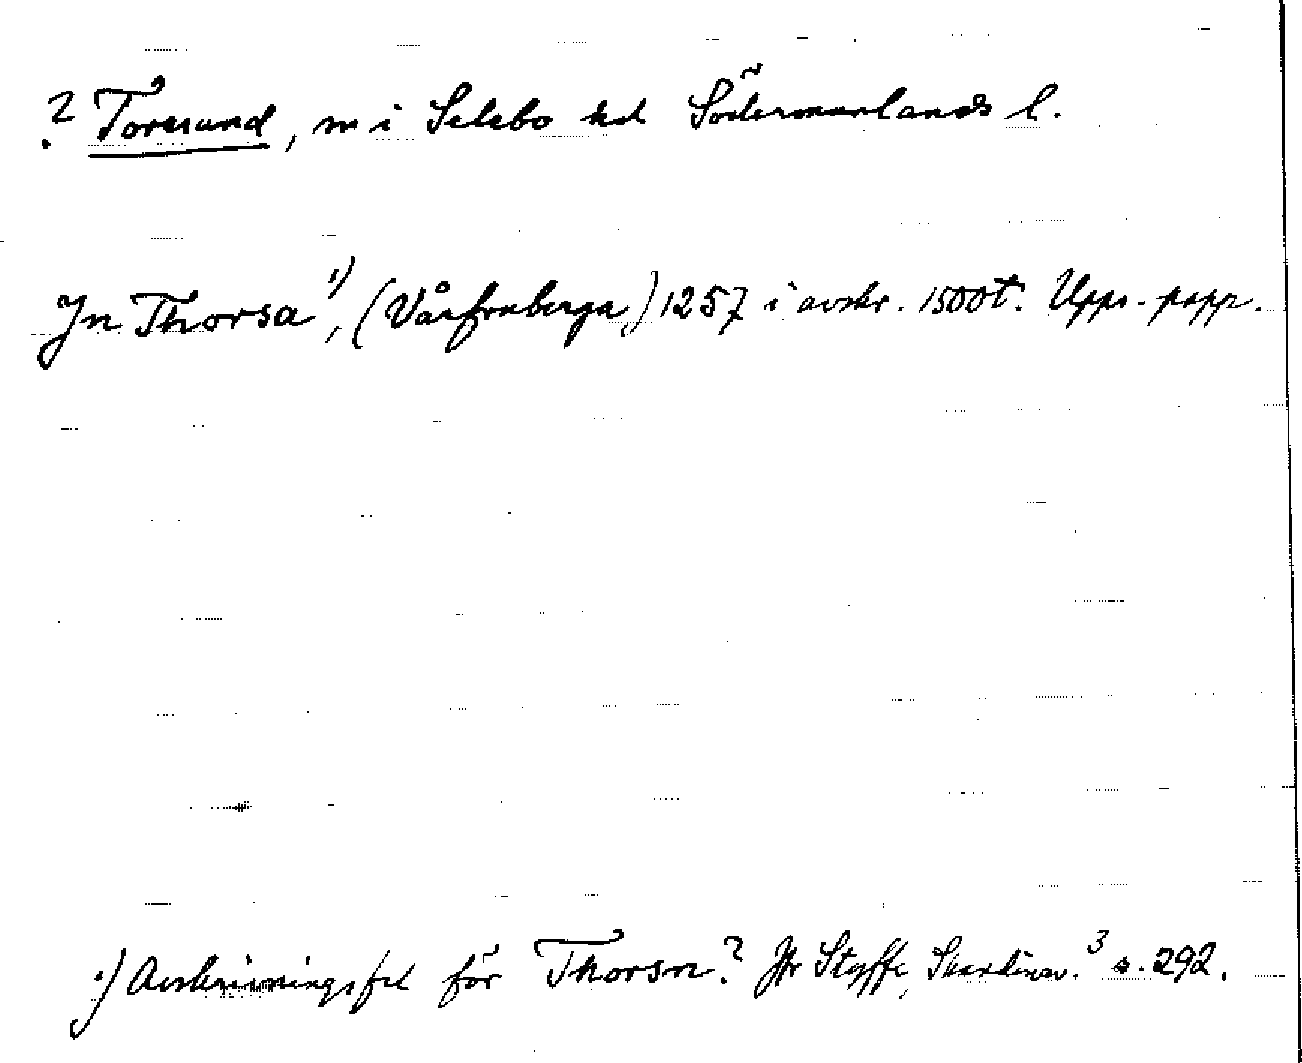 ? Toresund, sn i Selebo hd Södermanlands l.
Jn Thorsa¹⁾, (Vårfruberga) 1257 i avskr. 1500t. Upps. papp.
¹⁾ Avskrivningsfel för Thorsn? Jfr Styffe, Skandinav.³ s. 292.